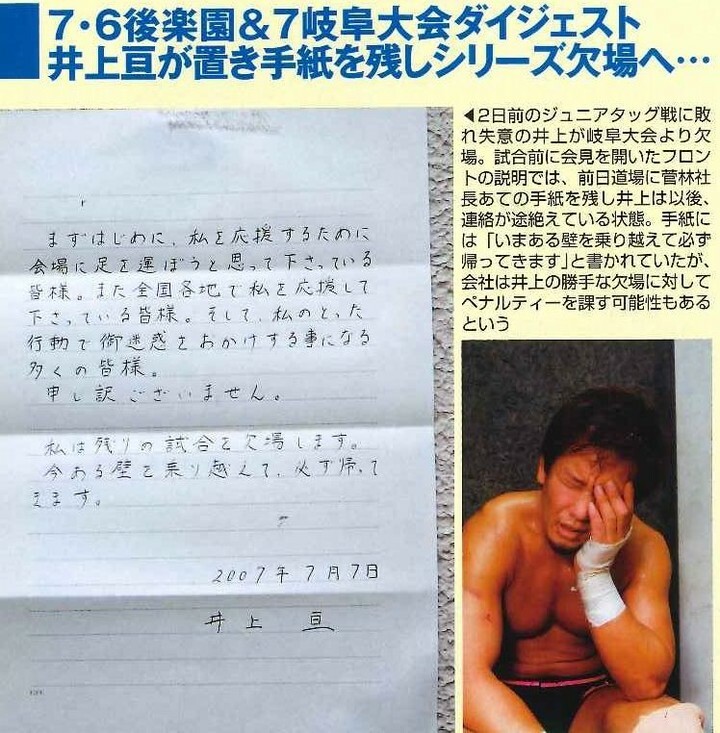 7・6後楽園&7岐阜大会ダイジェスト
井上亘が置き手紙を残しシリーズ欠場へ…
まずはじめに、私を応援するために
会場に足を運ぼうと思って下さっている
皆様。また全国各地で私を応援して
下さっている皆様。そして、私のとった
行動で御迷惑をおかけする事になる
多くの皆様。
申し訳ございません。
私は残りの試合を欠場します。
今ある壁を乗り越えて、必ず帰って
きます。
2007年7月7日
井上 亘
◀2日前のジュニアタッグ戦に敗
れ失意の井上が岐阜大会より欠
場。試合前に会見を開いたフロン
トの説明では、前日道場に菅林社
長あての手紙を残し井上は以後、
連絡が途絶えている状態。手紙に
は「いまある壁を乗り越えて必ず
帰ってきます」と書かれていたが、
会社は井上の勝手な欠場に対して
ペナルティーを課す可能性もある
という